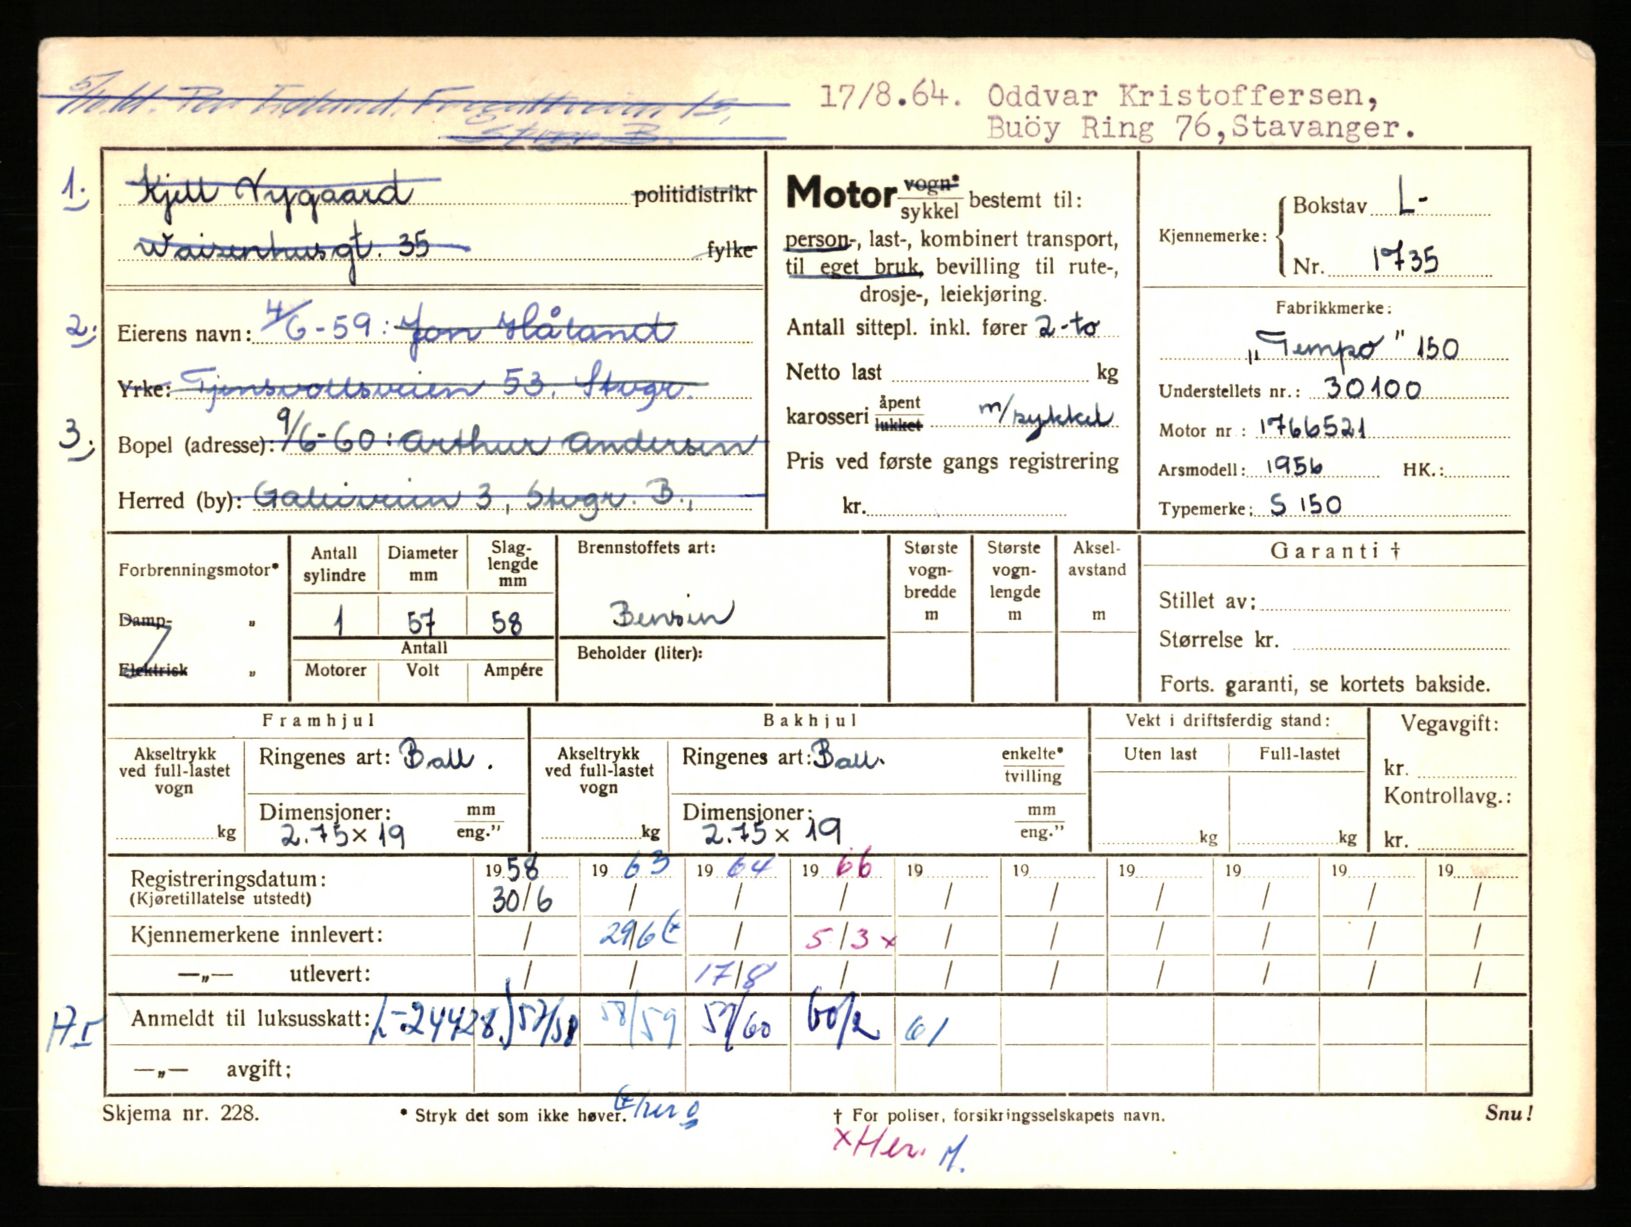 17/8.64. Oddvar Kristoffersen,
Buöy Ring 76, Stavanger.
1. Kjell Nygaard politidistrikt
Waisenhusgt. 35 fylke
2. Eierens navn: 4/6-59: Jon Håland
Yrke: Tjensvollsveien 53. Stvgr.
3. Bopel (adresse): 9/6-60: Arthur Andersen
Herred (by): 3, Stvgr. B.,
Motor vogn* sykkel bestemt til:
person-, last-, kombinert transport,
til eget bruk, bevilling til rute-,
drosje-, leiekjøring.
Antall sittepl. inkl. fører 2-to
Netto last kg
karosseri åpent lukket m/sykkel
Pris ved første gangs registrering
kr.
Kjennemerke: Bokstav L-
Nr. 1735
Fabrikkmerke:
"Tempo" 150
Understellets nr.: 30100
Motor nr : 1766521
Arsmodell: 1956 HK.:
Typemerke: S 150
Forbrenningsmotor*
Damp- "
Elektrisk "
Antall sylindre 1
Diameter mm 57
Slaglengde mm 58
Antall
Motorer Volt Ampére
Brennstoffets art:
Bensin
Beholder (liter):
Største vognbredde m
Største vognlengde m
Akselavstand m
Garanti †
Stillet av:
Størrelse kr.
Forts. garanti, se kortets bakside.
Framhjul
Akseltrykk ved full-lastet vogn kg
Ringenes art: Ball.
Dimensjoner: mm eng."
2.75 x 19
Bakhjul
Akseltrykk ved full-lastet vogn kg
Ringenes art: Ball. enkelte* tvilling
Dimensjoner: mm eng."
2.75 x 19
Vekt i driftsferdig stand:
Uten last Full-lastet
kg kg
Vegavgift:
kr.
Kontrollavg.:
kr.
1958 1963 1964 1966 19 19 19 19 19 19
Registreringsdatum: 30/6 / / / / / / / / /
(Kjøretillatelse utstedt)
Kjennemerkene innlevert: / 29/6 / 5/3 x / / / / / /
—"— utlevert: / / 17/8 / / / / / / /
Anmeldt til luksusskatt: L-24428.) 57/58 58/59 59/60 60/2 61
—"— avgift:
Skjema nr. 228. * Stryk det som ikke høver. † For poliser, forsikringsselskapets navn. Snu!
x Her. M.